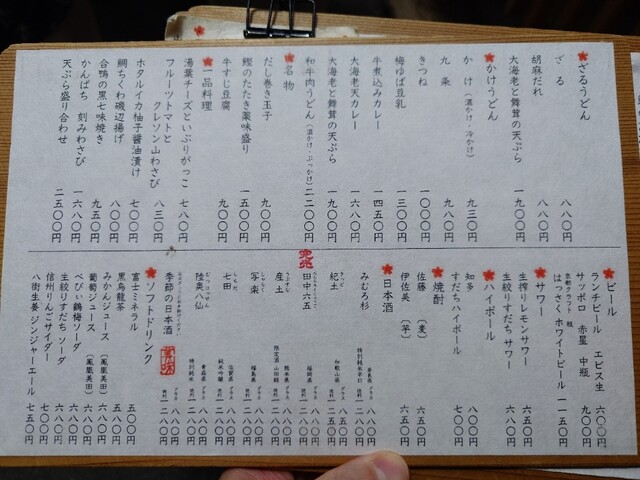 ざるうどん
ざる 八八〇円
胡麻だれ 八八〇円
大海老と舞茸の天ぷら 一九〇〇円
かけうどん
かけ(温かけ・冷かけ) 九三〇円
九条 九八〇円
きつね 一〇〇〇円
梅ゆば豆乳 一三〇〇円
牛煮込みカレー 一四五〇円
大海老天カレー 一六八〇円
大海老と舞茸の天ぷら 一九〇〇円
和牛肉うどん(温かけ・ぶっかけ) 二二〇〇円
名物
だし巻き玉子 九〇〇円
鰹のたたき薬味盛り 一五〇〇円
牛すじ豆腐 九〇〇円
一品料理
湯葉チーズといぶりがっこ 七八〇円
フルーツトマトと
クレソン山わさび 八三〇円
ホタルイカ柚子醤油漬け 七〇〇円
鯛ちくわ磯辺揚げ 八〇〇円
合鴨の黒七味焼き 九五〇円
かんぱち 刻みわさび 一六八〇円
天ぷら盛り合わせ 二五〇〇円
ビール
ランチビール エビス生 六〇〇円
サッポロ 赤星 中瓶 九〇〇円
京都クラフト 瓶
はっさくホワイトビール 一一五〇円
サワー
生搾りレモンサワー 六五〇円
生絞りすだちサワー 六八〇円
ハイボール
知多 八〇〇円
すだちハイボール 七〇〇円
焼酎
佐藤(麦) 六五〇円
伊佐美(芋) 六五〇円
日本酒
みむろ杉 特別純米辛口 奈良県
紀土 和歌山県
田中六五 福岡県
産土 熊本県
写楽 福島県
七田 純米吟醸 佐賀県
陸奥八仙 特別純米 青森県
季節の日本酒
ソフトドリンク
富士ミネラル 五〇〇円
黒烏龍茶 五八〇円
みかんジュース(鳳凰美田) 六八〇円
葡萄ジュース(鳳凰美田) 六八〇円
べびぃ鶴梅ソーダ 六八〇円
生絞りすだちソーダ 六八〇円
信州りんごサイダー 六八〇円
八街生姜ジンジャーエール 七五〇円